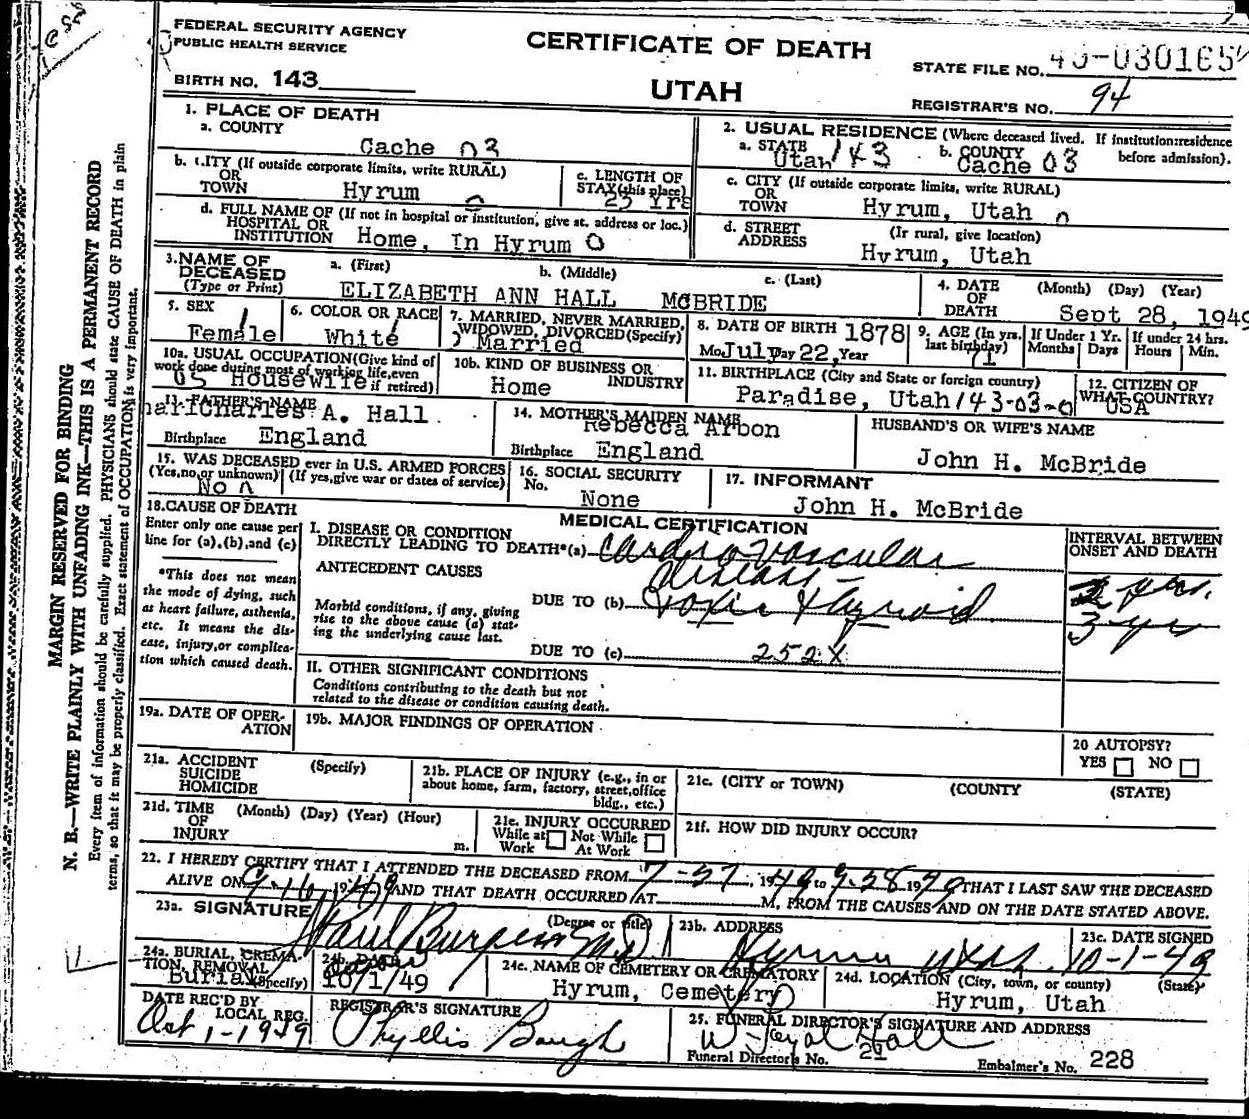 FEDERAL SECURITY AGENCY
PUBLIC HEALTH SERVICE
CERTIFICATE OF DEATH
STATE FILE NO. 49-030165
BIRTH NO. 143
UTAH
REGISTRAR'S NO. 94
1. PLACE OF DEATH
a. COUNTY
Cache 03
2. USUAL RESIDENCE (Where deceased lived. If institution:residence before admission).
a. STATE Utah 143 b. COUNTY Cache 03
b. CITY (If outside corporate limits, write RURAL)
OR TOWN Hyrum
c. LENGTH OF STAY (this place)
25 Yrs
c. CITY (If outside corporate limits, write RURAL)
OR TOWN Hyrum, Utah
d. FULL NAME OF (If not in hospital or institution, give st. address or loc.)
HOSPITAL OR INSTITUTION Home, In Hyrum 0
d. STREET ADDRESS (Ir rural, give location)
Hyrum, Utah
3. NAME OF DECEASED
(Type or Print)
a. (First) b. (Middle) c. (Last)
ELIZABETH ANN HALL MCBRIDE
4. DATE OF DEATH (Month) (Day) (Year)
Sept 28, 1949
5. SEX
Female
6. COLOR OR RACE
White
7. MARRIED, NEVER MARRIED, WIDOWED, DIVORCED (Specify)
Married
8. DATE OF BIRTH 1878
Mo July Day 22, Year
9. AGE (In yrs. last birthday)
71
If Under 1 Yr. Months Days
If under 24 hrs. Hours Min.
10a. USUAL OCCUPATION (Give kind of work done during most of working life, even if retired)
05 Housewife
10b. KIND OF BUSINESS OR INDUSTRY
Home
11. BIRTHPLACE (City and State or foreign country)
Paradise, Utah 143-03-0
12. CITIZEN OF WHAT COUNTRY?
USA
13. FATHER'S NAME
Charles A. Hall
Birthplace England
14. MOTHER'S MAIDEN NAME
Rebecca Arbon
Birthplace England
HUSBAND'S OR WIFE'S NAME
John H. McBride
15. WAS DECEASED ever in U.S. ARMED FORCES
(Yes, no, or unknown) (If yes, give war or dates of service)
No
16. SOCIAL SECURITY No.
None
17. INFORMANT
John H. McBride
18. CAUSE OF DEATH
Enter only one cause per line for (a), (b), and (c)
MEDICAL CERTIFICATION
INTERVAL BETWEEN ONSET AND DEATH
I. DISEASE OR CONDITION
DIRECTLY LEADING TO DEATH*(a) Cardiovascular
disease
yrs.
*This does not mean the mode of dying, such as heart failure, asthenia, etc. It means the disease, injury, or complication which caused death.
ANTECEDENT CAUSES
Morbid conditions, if any, giving rise to the above cause (a) stating the underlying cause last.
DUE TO (b) Toxic thyroid
3 yr
DUE TO (c) 252X
II. OTHER SIGNIFICANT CONDITIONS
Conditions contributing to the death but not
related to the disease or condition causing death.
19a. DATE OF OPERATION
19b. MAJOR FINDINGS OF OPERATION
20 AUTOPSY?
YES NO
21a. ACCIDENT
SUICIDE
HOMICIDE
(Specify)
21b. PLACE OF INJURY (e.g., in or about home, farm, factory, street, office bldg., etc.)
21c. (CITY or TOWN) (COUNTY) (STATE)
21d. TIME OF INJURY (Month) (Day) (Year) (Hour) m.
21e. INJURY OCCURRED
While at Work Not While At Work
21f. HOW DID INJURY OCCUR?
22. I HEREBY CERTIFY THAT I ATTENDED THE DECEASED FROM 7-27, 1949 to 9-28 1949 THAT I LAST SAW THE DECEASED
ALIVE ON 9-16, 1949 AND THAT DEATH OCCURRED AT M, FROM THE CAUSES AND ON THE DATE STATED ABOVE.
23a. SIGNATURE (Degree or title)
Paul Burgess M.D.
23b. ADDRESS
Hyrum Utah
23c. DATE SIGNED
10-1-49
24a. BURIAL, CREMATION, REMOVAL (Specify)
Burial
24b. DATE
10/1/49
24c. NAME OF CEMETERY OR CREMATORY
Hyrum, Cemetery
24d. LOCATION (City, town, or county) (State)
Hyrum, Utah
DATE REC'D BY LOCAL REG.
Oct 1-1949
REGISTRAR'S SIGNATURE
Phyllis Baugh
25. FUNERAL DIRECTOR'S SIGNATURE AND ADDRESS
W. Loyal Hall
Funeral Director's No. Embalmer's No. 228
MARGIN RESERVED FOR BINDING
N. B.—WRITE PLAINLY WITH UNFADING INK—THIS IS A PERMANENT RECORD
Every item of information should be carefully supplied. PHYSICIANS should state CAUSE OF DEATH in plain
terms, so that it may be properly classified. Exact statement of OCCUPATION is very important.